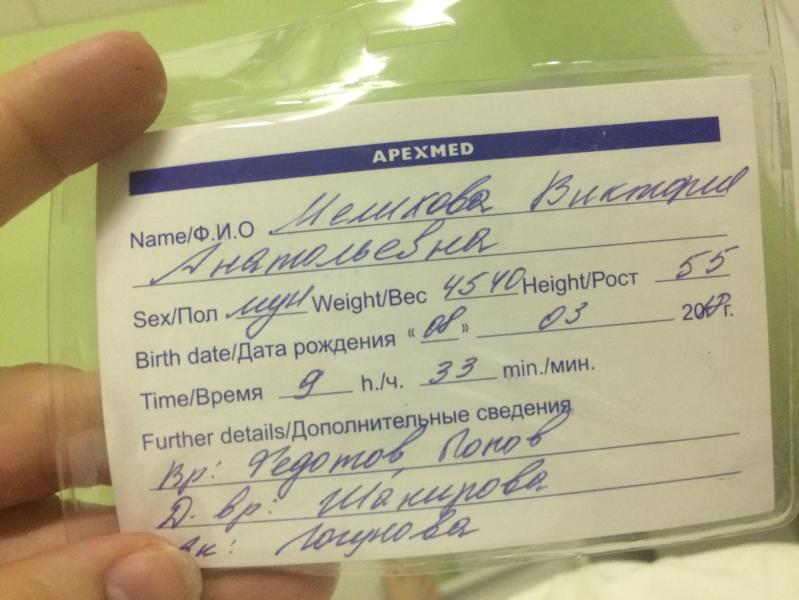 APEXMED
Name/Ф.И.О Мелихова Виктория
Анатольевна
Sex/Пол муж Weight/Вес 4540 Height/Рост 55
Birth date/Дата рождения «08» 03 20 г.
Time/Время 9 h./ч. 33 min./мин.
Further details/Дополнительные сведения
Вр: Федотов, Попов
Д. вр: Шакирова
Ак: Логунова